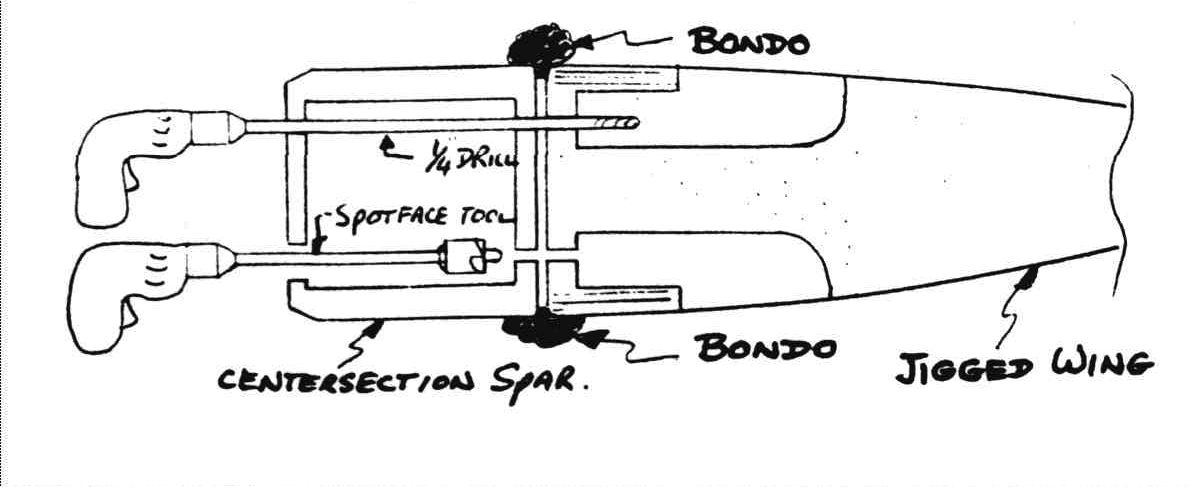 BONDO
1/4 DRILL
SPOTFACE TOOL
BONDO
CENTERSECTION SPAR.
JIGGED WING